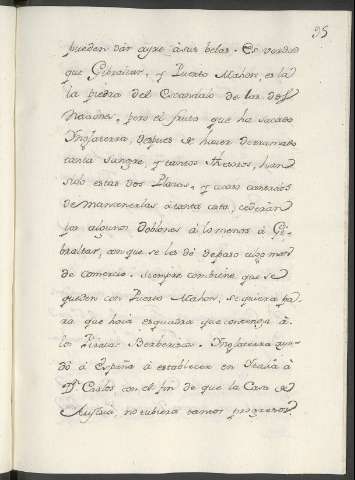 95
pueden dár ayre á sus belas. Es verdad
que Gibraltar, y Puerto Mahon, es la
la piedra del Escandalo de las dos
Naciones, pero el fruto que ha sacado
Inglaterra, despues de haver derramado
tanta sangre, y tantos thesoros, han
sido estas dos Plazas, y acaso cansados
de mantenerlas á tanta costa, cederán
por algunos doblones á lo menos á Gi-
braltár, con que se les dé de paso algo mas
de comercio. Siempre combiene que se
queden con Puerto Mahon, se quiera pa-
ra que haia esquadra que contenga á
los Piratas Berberiscos. Inglaterra ayu-
dó á España á establecer en Italia á
Dn Carlos con el fin de que la Casa de
Austria, no tubiera tantos progresos